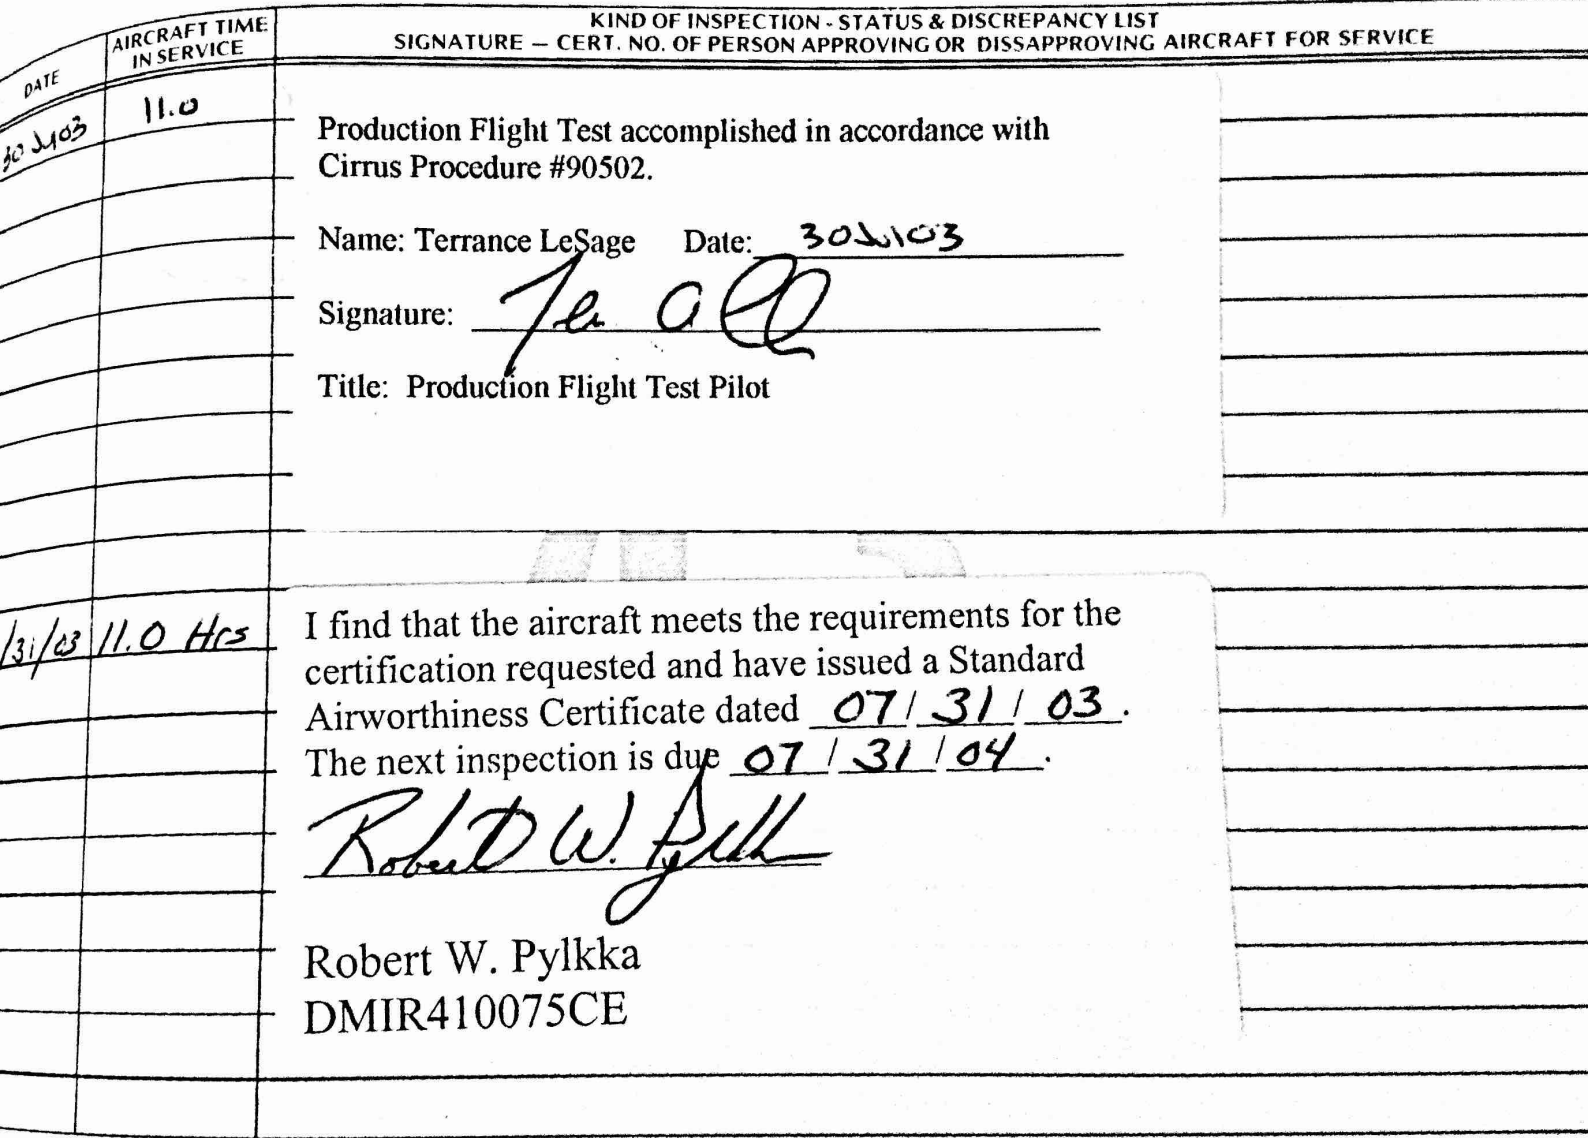 DATE
AIRCRAFT TIME
IN SERVICE
KIND OF INSPECTION - STATUS & DISCREPANCY LIST
SIGNATURE — CERT. NO. OF PERSON APPROVING OR DISSAPPROVING AIRCRAFT FOR SERVICE
30 Jul 03 11.0
Production Flight Test accomplished in accordance with
Cirrus Procedure #90502.
Name: Terrance LeSage Date: 30 Jul 03
Signature:
Title: Production Flight Test Pilot
/31/03 11.0 Hrs
I find that the aircraft meets the requirements for the
certification requested and have issued a Standard
Airworthiness Certificate dated 07/31/03.
The next inspection is due 07/31/04.
Robert W. Pylkka
Robert W. Pylkka
DMIR410075CE